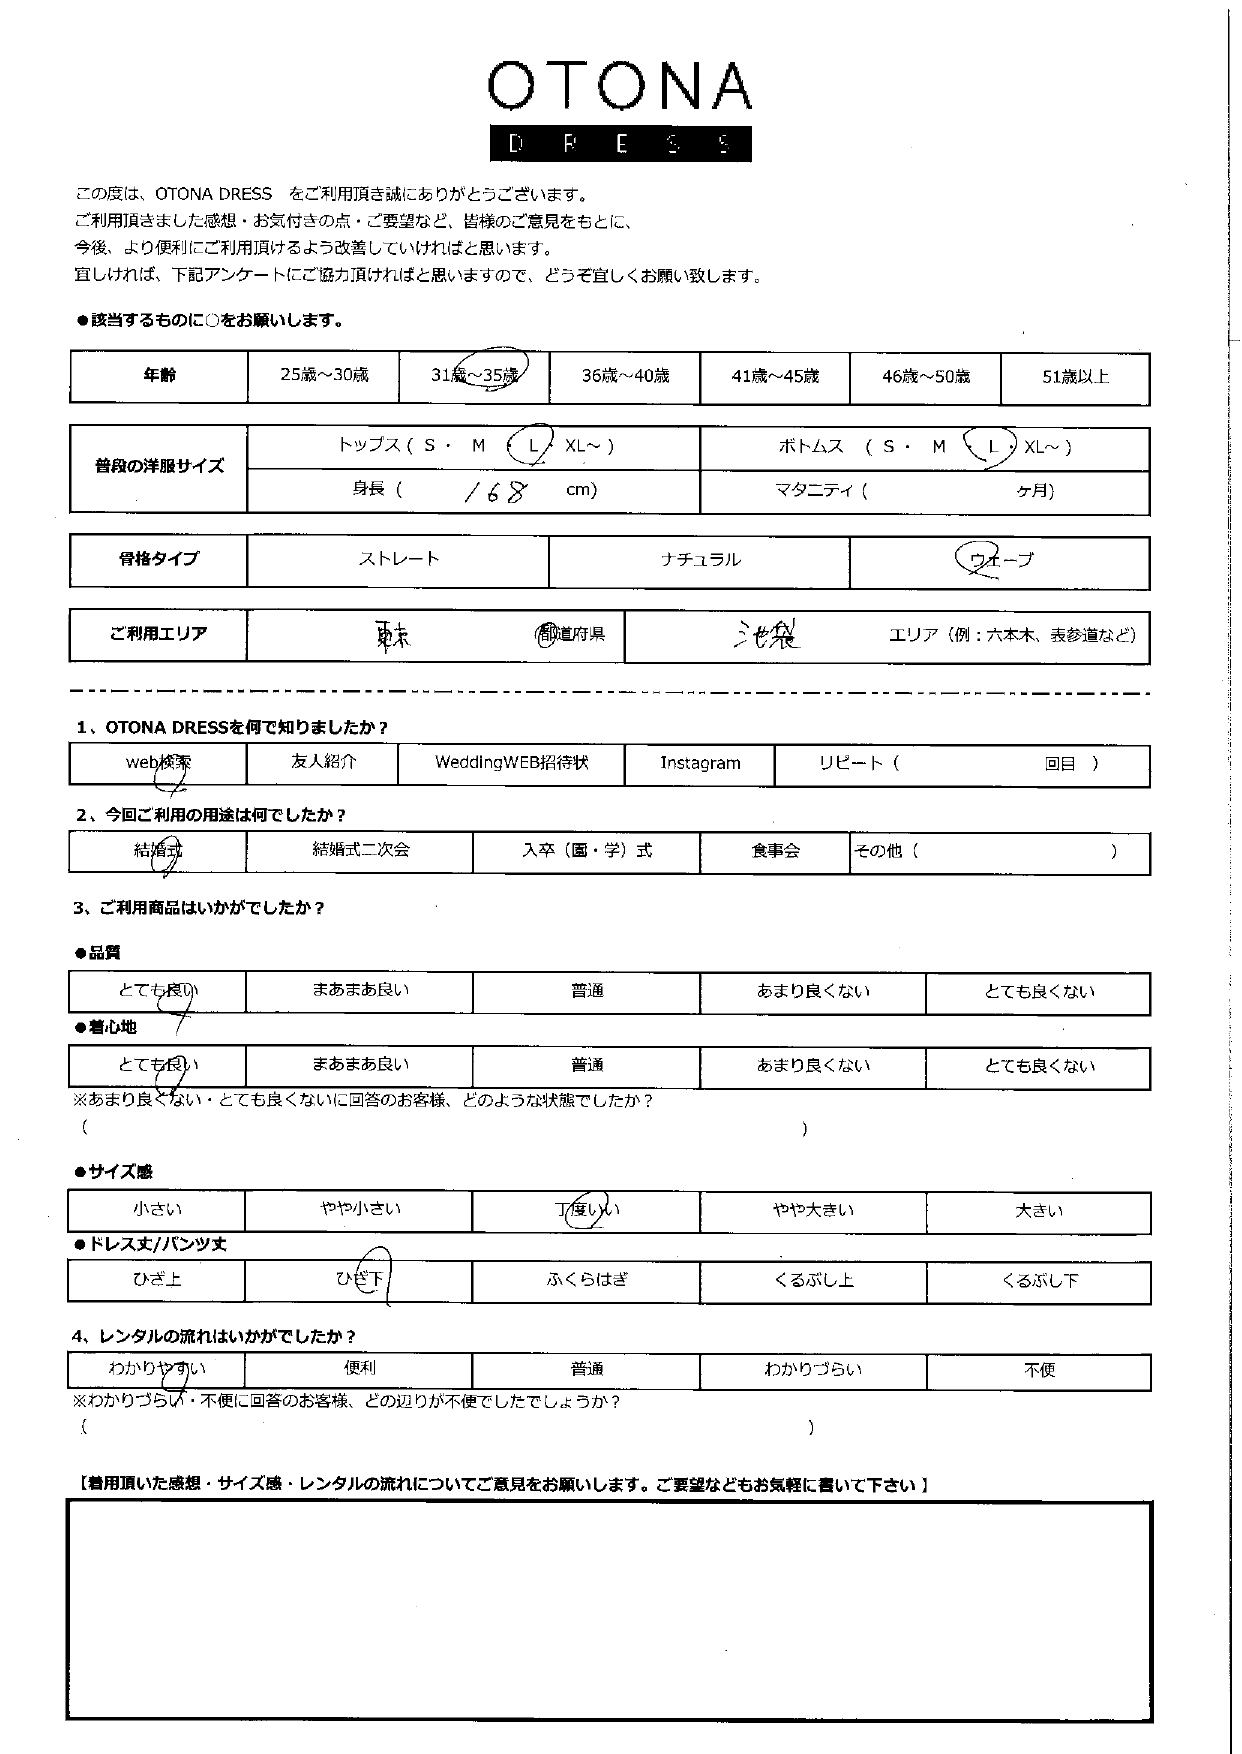 OTONA
DRESS
この度は、OTONA DRESS　をご利用頂き誠にありがとうございます。
ご利用頂きました感想・お気付きの点・ご要望など、皆様のご意見をもとに、
今後、より便利にご利用頂けるよう改善していければと思います。
宜しければ、下記アンケートにご協力頂ければと思いますので、どうぞ宜しくお願い致します。
●該当するものに○をお願いします。
年齢 25歳～30歳 31歳～35歳 36歳～40歳 41歳～45歳 46歳～50歳 51歳以上
普段の洋服サイズ トップス ( S ・ M ・ L ・ XL～ ) ボトムス ( S ・ M ・ L ・ XL～ )
身長 ( 168 cm) マタニティ ( ケ月)
骨格タイプ ストレート ナチュラル ウェーブ
ご利用エリア 東京 都道府県 池袋 エリア（例：六本木、表参道など）
1、OTONA DRESSを何で知りましたか？
web検索 友人紹介 WeddingWEB招待状 Instagram リピート ( 回目 )
2、今回ご利用の用途は何でしたか？
結婚式 結婚式二次会 入卒（園・学）式 食事会 その他 ( )
3、ご利用商品はいかがでしたか？
●品質
とても良い まあまあ良い 普通 あまり良くない とても良くない
●着心地
とても良い まあまあ良い 普通 あまり良くない とても良くない
※あまり良くない・とても良くないに回答のお客様、どのような状態でしたか？
( )
●サイズ感
小さい やや小さい 丁度いい やや大きい 大きい
●ドレス丈/パンツ丈
ひざ上 ひざ下 ふくらはぎ くるぶし上 くるぶし下
4、レンタルの流れはいかがでしたか？
わかりやすい 便利 普通 わかりづらい 不便
※わかりづらい・不便に回答のお客様、どの辺りが不便でしたでしょうか？
( )
【着用頂いた感想・サイズ感・レンタルの流れについてご意見をお願いします。ご要望などもお気軽に書いて下さい 】